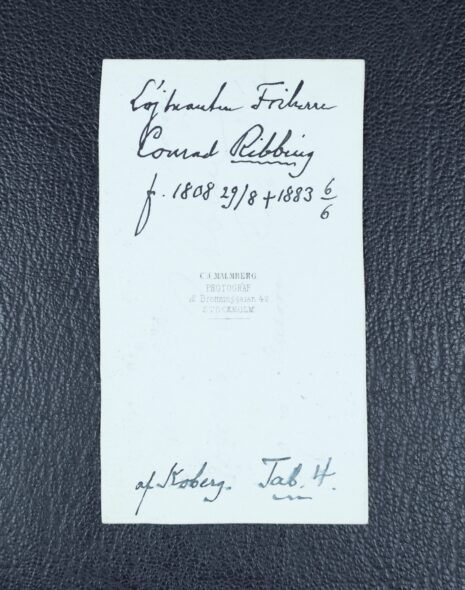 Löjtnanten Friherre
Conrad Ribbing
f. 1808 29/8 + 1883 6/6
C J MALMBERG
PHOTOGRAF
42 Drottninggatan 42
STOCKHOLM
af Koberg. Tab. 4.